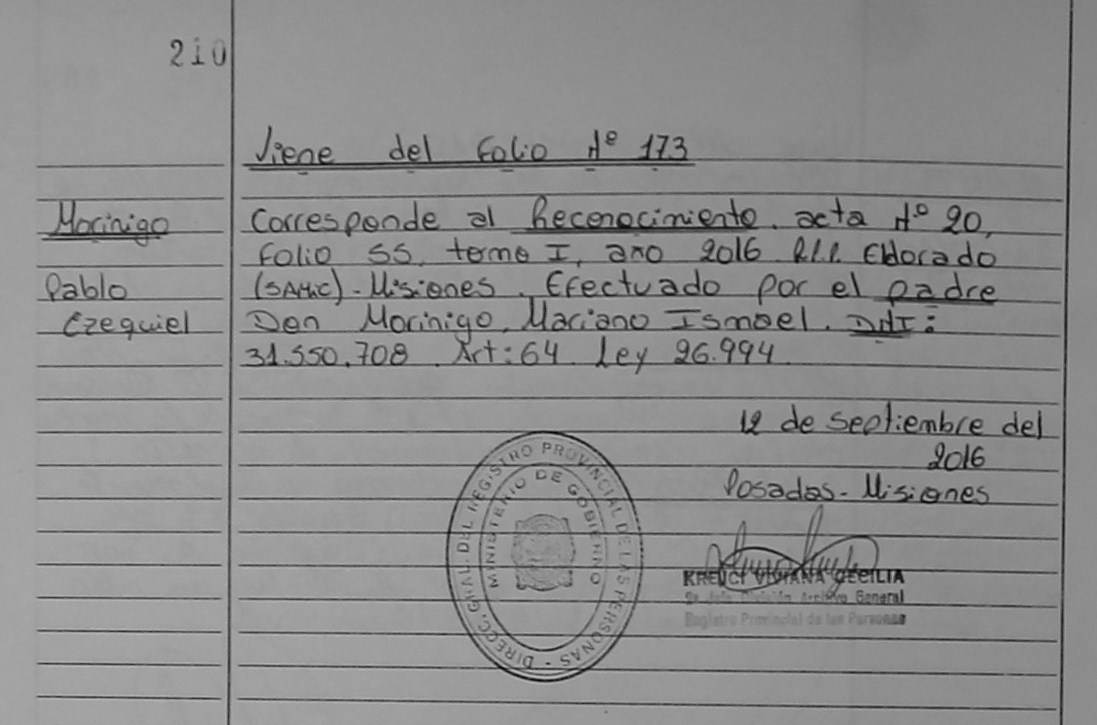 210
Viene del Folio Nº 173
Morinigo
Pablo
Ezequiel
Corresponde al Reconocimiento. acta Nº 20,
Folio 55. tomo I, año 2016 R.P.P. Eldorado
(SAMIC) - Misiones. Efectuado por el padre
Don Morinigo, Mariano Ismael. DNI:
31.550.708 Art: 64 Ley 26.994
12 de Septiembre del
2016
Posadas - Misiones
DIRECC. GRAL. DEL REGISTRO PROVINCIAL DE LAS PERSONAS -
MINISTERIO DE GOBIERNO
KREUCI VIVIANA CECILIA
División Archivo General
Registro Provincial de las Personas